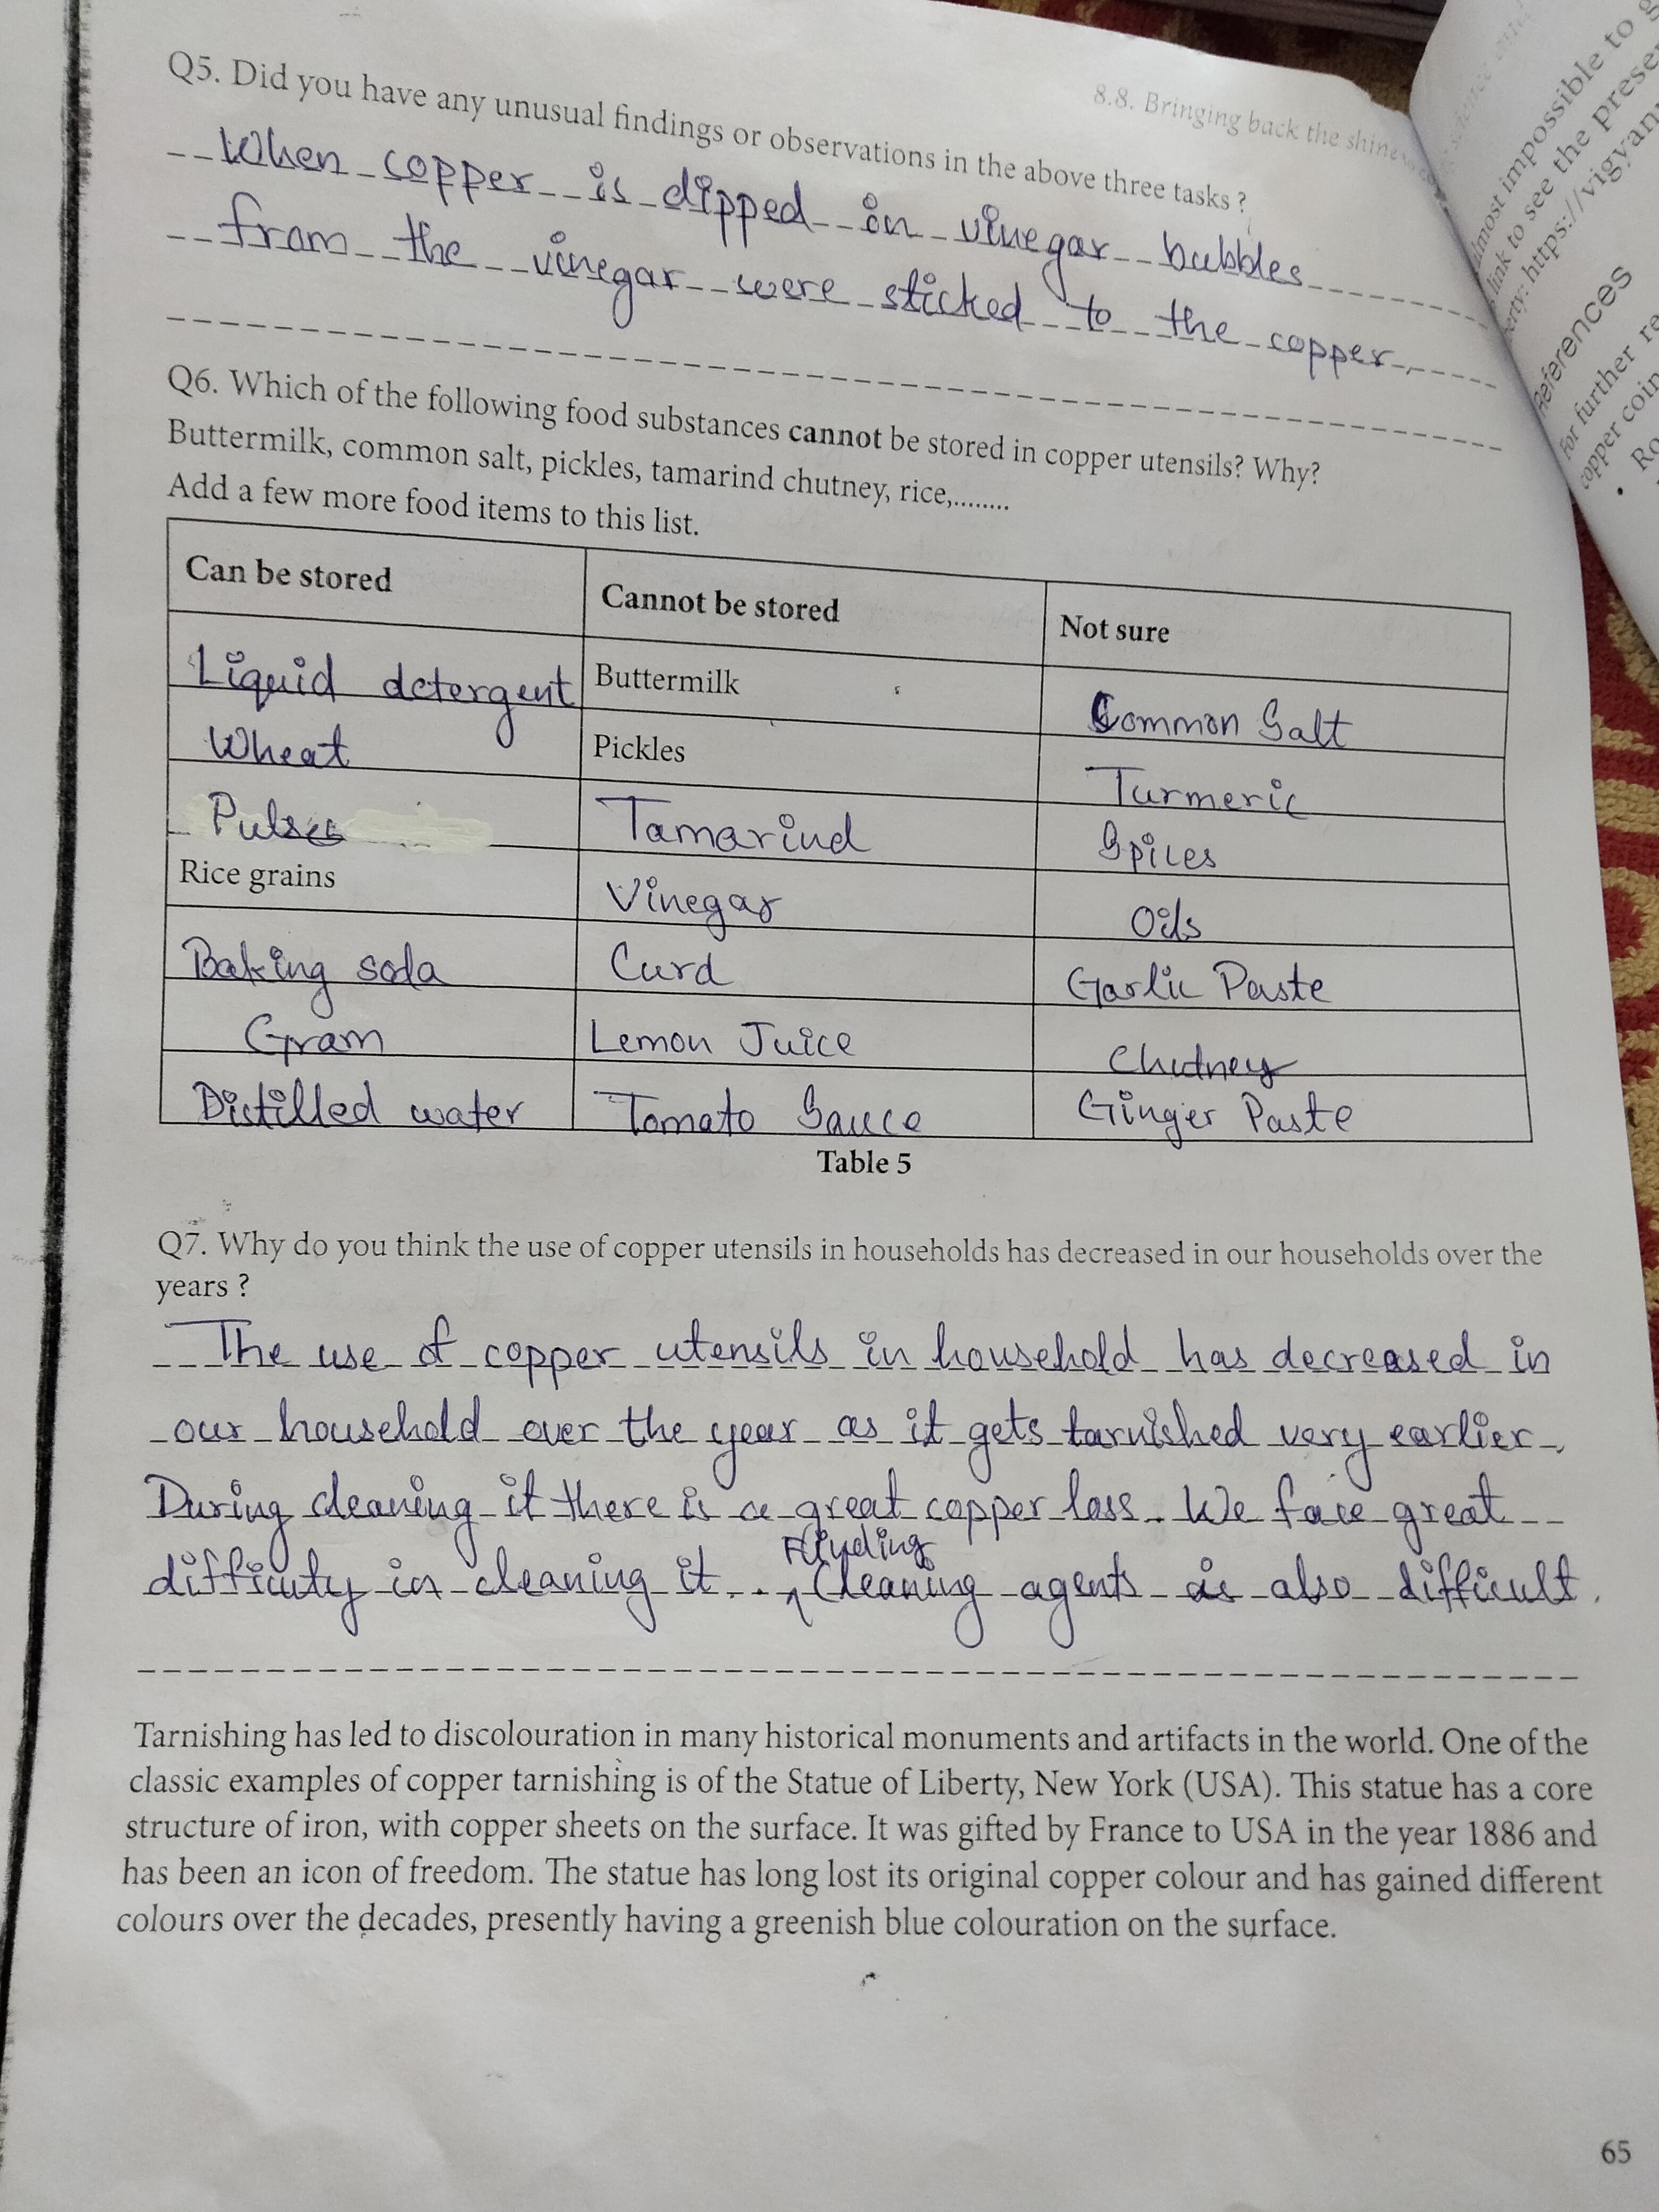 8.8. Bringing back the shine
Q5. Did you have any unusual findings or observations in the above three tasks ?
When copper is dipped in vinegar bubbles
from the vinegar were sticked to the copper.
Q6. Which of the following food substances cannot be stored in copper utensils? Why?
Buttermilk, common salt, pickles, tamarind chutney, rice,........
Add a few more food items to this list.
Can be stored Cannot be stored Not sure
Liquid detergent Buttermilk Common Salt
Wheat Pickles Turmeric
Pulses Tamarind Spices
Rice grains Vinegar Oils
Baking soda Curd Garlic Paste
Gram Lemon Juice Chutney
Distilled water Tomato Sauce Ginger Paste
Table 5
Q7. Why do you think the use of copper utensils in households has decreased in our households over the
years ?
The use of copper utensils in household has decreased in
our household over the year as it gets tarnished very earlier.
During cleaning it there is a great copper loss. We face great
Finding
difficuty in cleaning it. Cleaning agents is also difficult.
Tarnishing has led to discolouration in many historical monuments and artifacts in the world. One of the
classic examples of copper tarnishing is of the Statue of Liberty, New York (USA). This statue has a core
structure of iron, with copper sheets on the surface. It was gifted by France to USA in the year 1886 and
has been an icon of freedom. The statue has long lost its original copper colour and has gained different
colours over the decades, presently having a greenish blue colouration on the surface.
65
impossible to
link to see the
https://vigyan
References
For further
copper coin